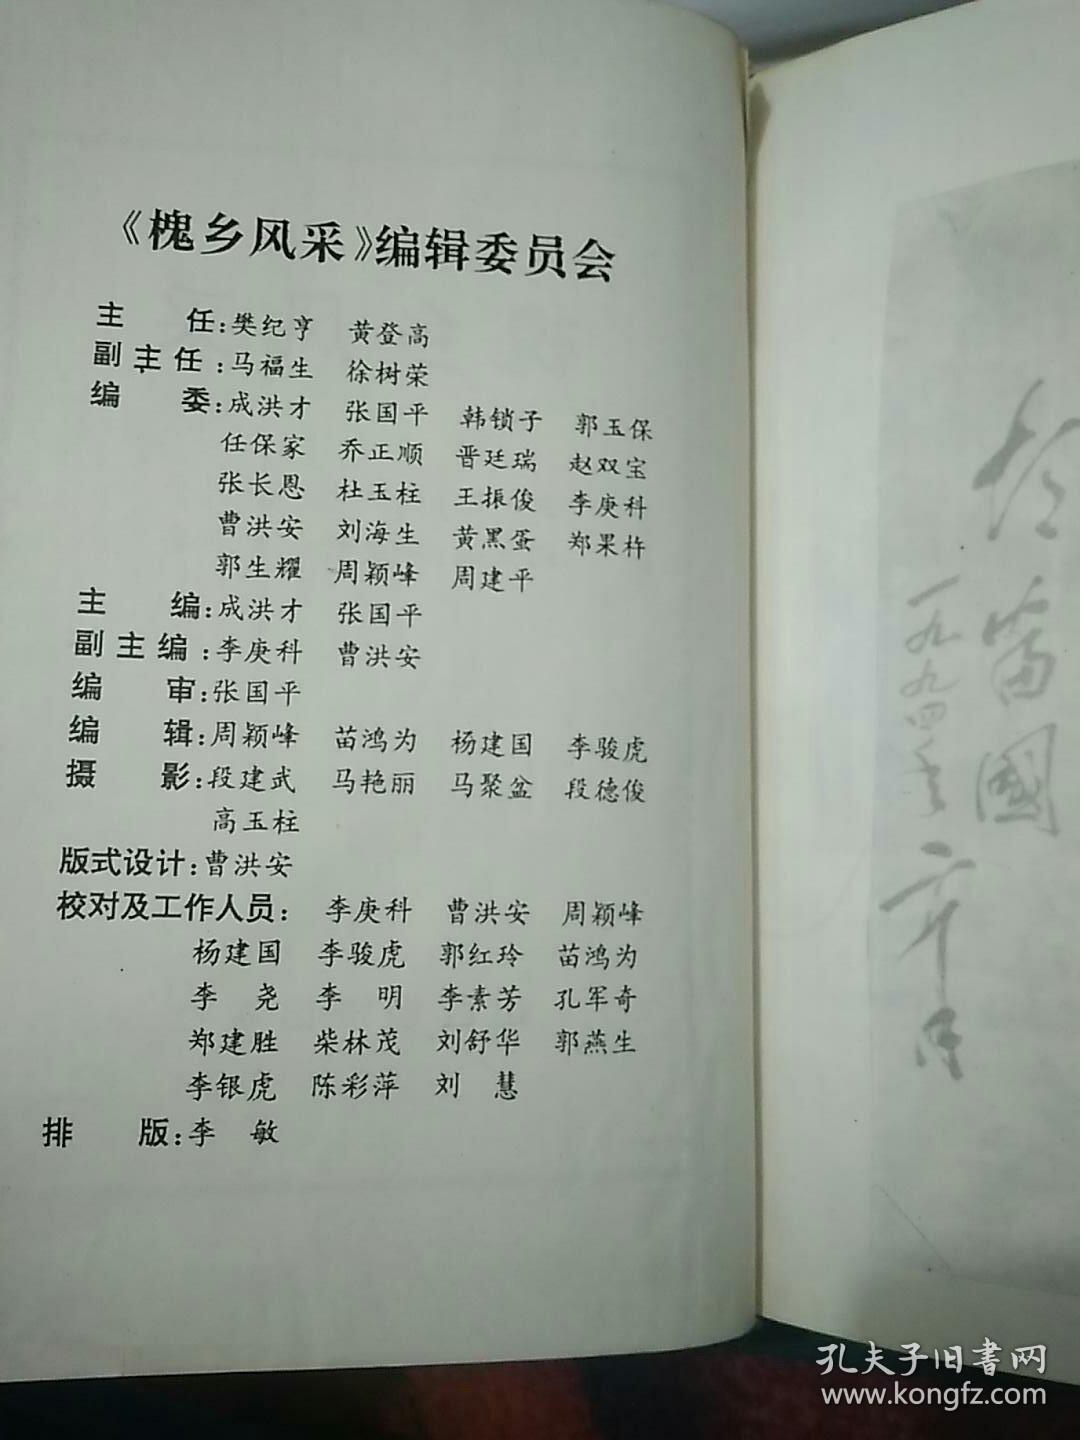 《槐乡风采》编辑委员会
主 任:樊纪亨 黄登高
副主任:马福生 徐树荣
编 委:成洪才 张国平 韩锁子 郭玉保
任保家 乔正顺 晋廷瑞 赵双宝
张长恩 杜玉柱 王振俊 李庚科
曹洪安 刘海生 黄黑蛋 郑果杵
郭生耀 周颖峰 周建平
主 编:成洪才 张国平
副主编:李庚科 曹洪安
编 审:张国平
编 辑:周颖峰 苗鸿为 杨建国 李骏虎
摄 影:段建武 马艳丽 马聚盆 段德俊
高玉柱
版式设计:曹洪安
校对及工作人员: 李庚科 曹洪安 周颖峰
杨建国 李骏虎 郭红玲 苗鸿为
李 尧 李 明 李素芳 孔军奇
郑建胜 柴林茂 刘舒华 郭燕生
李银虎 陈彩萍 刘 慧
排 版:李 敏
國
一九九四年
六月
孔夫子旧書网
www.kongfz.com